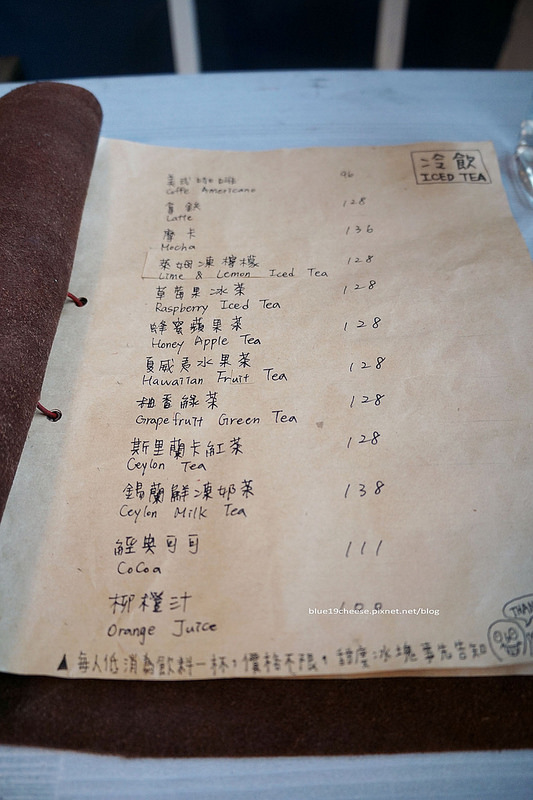 冷飲
ICED TEA
美式咖啡 96
Caffe Americano
拿鐵 128
Latte
摩卡 136
Mocha
萊姆凍檸檬 128
Lime & Lemon Iced Tea
草莓果冰茶 128
Raspberry Iced Tea
蜂蜜蘋果茶 128
Honey Apple Tea
夏威夷水果茶 128
Hawaiian Fruit Tea
柚香綠茶 128
Grapefruit Green Tea
斯里蘭卡紅茶 128
Ceylon Tea
錫蘭鮮凍奶茶 138
Ceylon Milk Tea
經典可可 111
CoCoa
柳橙汁
blue19cheese.pixnet.net/blog
Orange Juice
▲每人低消為飲料一杯,價格不限,甜度冰塊事先告知
THANK